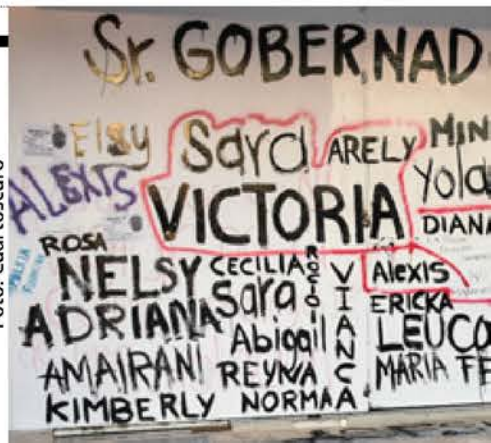 Foto: Cuartoscuro
Sr. GOBERNAD
Elsy Sara ARELY MIN
ALEXIS Yola
VICTORIA DIANA
ROSA
NELSY CECILIA ROCIO VIANCA Alexis
ADRIANA Sara ERICKA
Abigail LEUCO
AMAIRANI REYNA MARIA FE
KIMBERLY NORMA